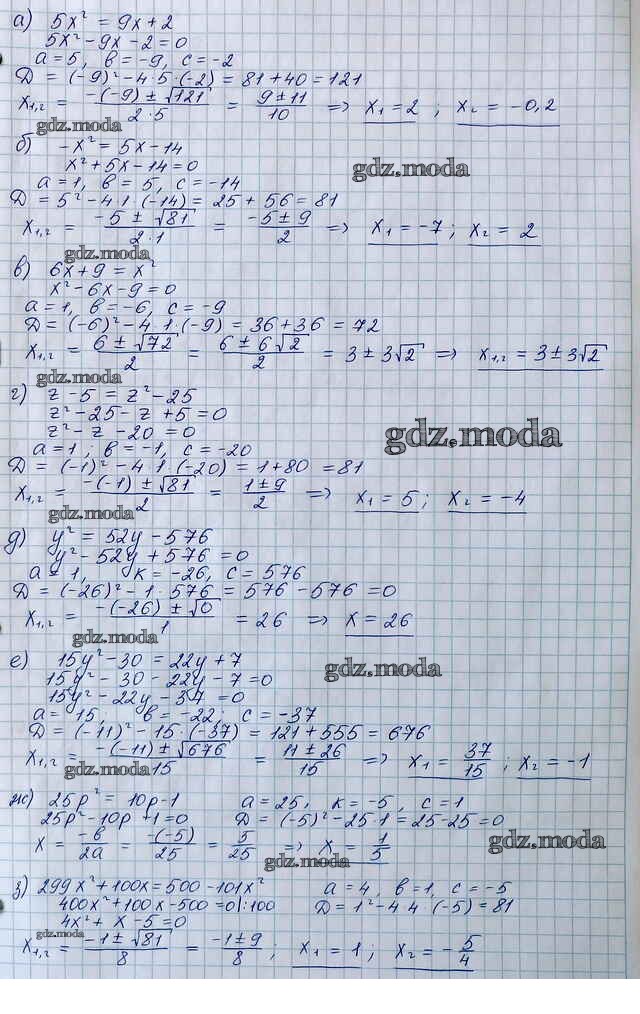 а) 5x² = 9x + 2
5x² - 9x - 2 = 0
a = 5, b = -9, c = -2
D = (-9)² - 4·5·(-2) = 81 + 40 = 121
x₁,₂ = (-(-9) ± √121)/(2·5) = (9 ± 11)/10 => x₁ = 2 ; x₂ = -0,2
gdz.moda
б) -x² = 5x - 14
x² + 5x - 14 = 0
gdz.moda
a = 1, b = 5, c = -14
D = 5² - 4·1·(-14) = 25 + 56 = 81
x₁,₂ = (-5 ± √81)/(2·1) = (-5 ± 9)/2 => x₁ = -7 ; x₂ = 2
gdz.moda
в) 6x + 9 = x²
x² - 6x - 9 = 0
a = 1, b = -6, c = -9
D = (-6)² - 4·1·(-9) = 36 + 36 = 72
x₁,₂ = (6 ± √72)/2 = (6 ± 6√2)/2 = 3 ± 3√2 => x₁,₂ = 3 ± 3√2
gdz.moda
г) z - 5 = z² - 25
z² - 25 - z + 5 = 0
z² - z - 20 = 0
gdz.moda
a = 1 ; b = -1, c = -20
D = (-1)² - 4·1·(-20) = 1 + 80 = 81
x₁,₂ = (-(-1) ± √81)/2 = (1 ± 9)/2 => x₁ = 5 ; x₂ = -4
gdz.moda
д) y² = 52y - 576
y² - 52y + 576 = 0
a = 1, k = -26, c = 576
D = (-26)² - 1·576 = 576 - 576 = 0
x₁,₂ = (-(-26) ± √0)/1 = 26 => x = 26
gdz.moda
е) 15y² - 30 = 22y + 7
gdz.moda
15y² - 30 - 22y - 7 = 0
15y² - 22y - 37 = 0
a = 15, b = -22; c = -37
D = (-11)² - 15·(-37) = 121 + 555 = 676
x₁,₂ = (-(-11) ± √676)/15 = (11 ± 26)/15 => x₁ = 37/15 ; x₂ = -1
gdz.moda
ж) 25p² = 10p - 1 a = 25, k = -5, c = 1
25p² - 10p + 1 = 0 D = (-5)² - 25·1 = 25 - 25 = 0
x = -b/2a = -(-5)/25 = 5/25 => x = 1/5
gdz.moda
gdz.moda
з) 299x² + 100x = 500 - 101x² a = 4, b = 1, c = -5
400x² + 100x - 500 = 0 |:100 D = 1² - 4·4·(-5) = 81
4x² + x - 5 = 0
gdz.moda
x₁,₂ = (-1 ± √81)/8 = (-1 ± 9)/8 ; x₁ = 1 ; x₂ = -5/4